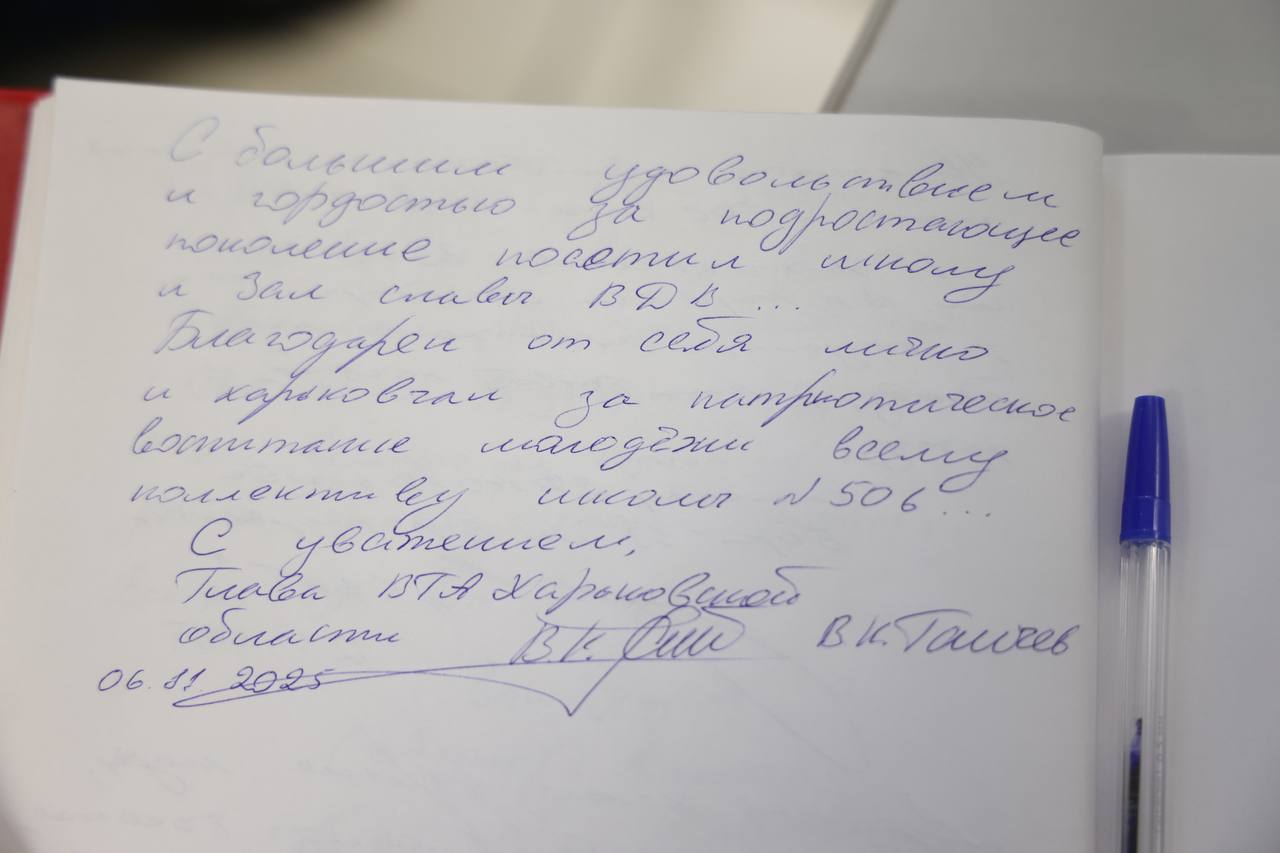 С большим удовольствием
и гордостью за подростающее
поколение посетил школу
и Зал славы ВДВ ...
Благодарен от себя лично
и харьковчан за патриотическое
воспитание молодёжи всему
коллективу школы №506...
С уважением,
Глава ВГА Харьковской
области В.К. В.К. Ганчев
06.11.2025